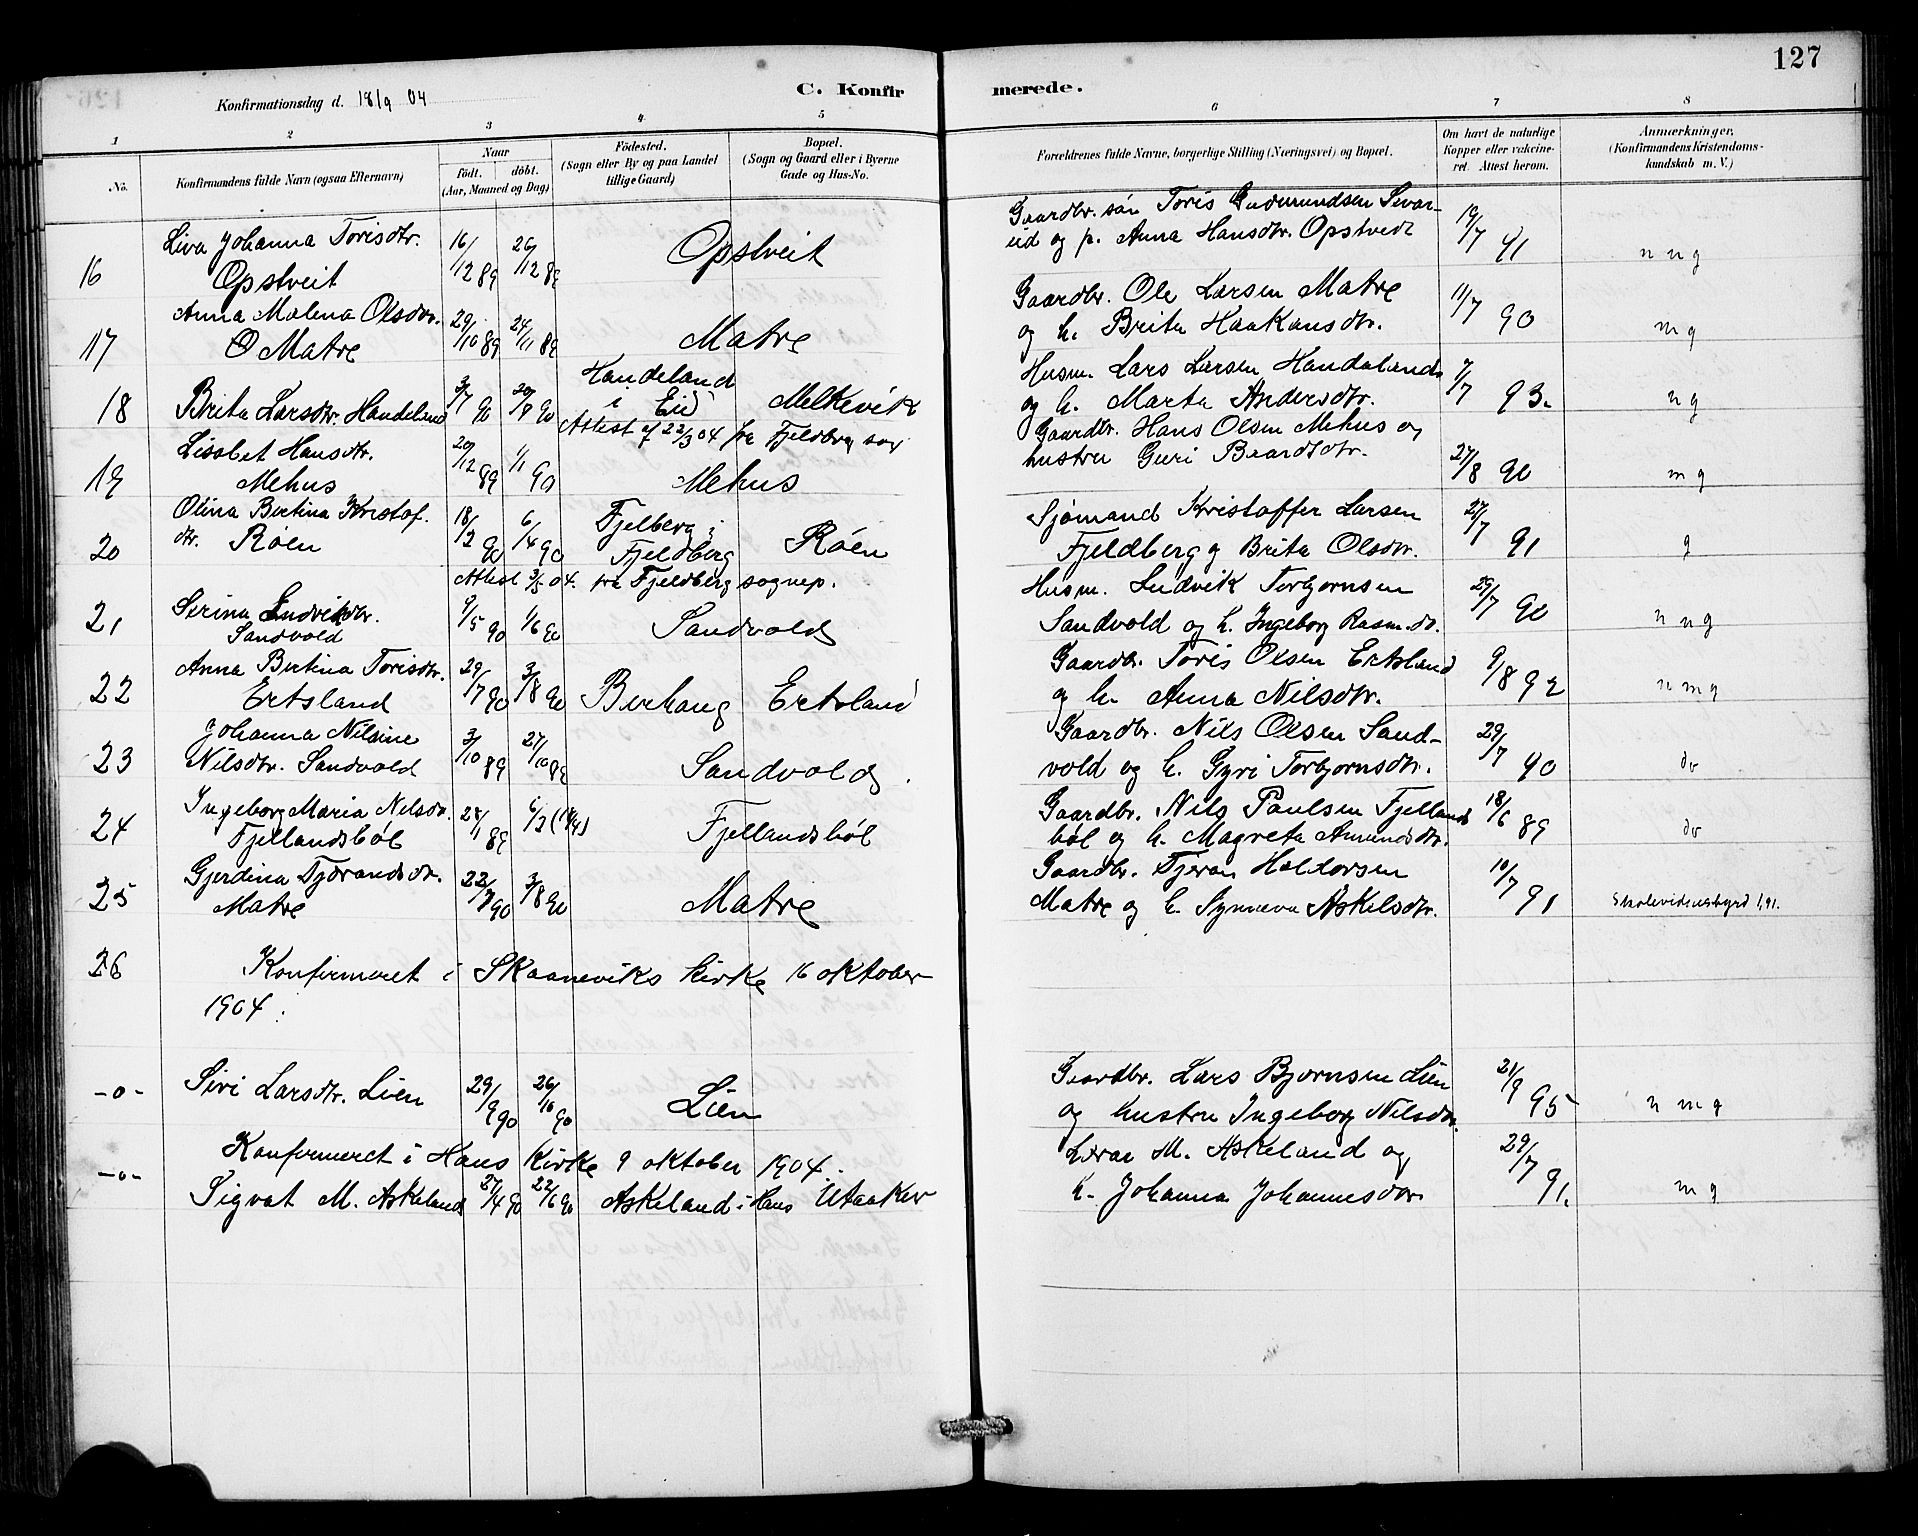 127
Konfirmationsdag d. 18/9 04
C. Konfirmerede.
1 2 3 4 5 6 7 8
No.
Konfirmandens fulde Navn (ogsaa Efternavn)
Naar
födt. döbt.
(Aar, Maaned og Dag)
Födested.
(Sogn eller By og paa Landet
tillige Gaard)
Bopæl.
(Sogn og Gaard eller i Byerne
Gade og Hus-No.
Forældrenes fulde Navne, borgerlige Stilling (Næringsvei) og Bopæl.
Om havt de naturlige
Kopper eller vakcine-
ret. Attest herom.
Anmærkninger.
(Konfirmandens Kristendoms-
kundskab m. V.)
Liva Johanna Torisdtr. 16/12 89 26/12 89 Opstveit Gaardbr. søn Toris Gudmundsen Sivar-
16 Opstveit eid og p. Anna Hansdtr. Opstvedt 19/7 91 n n g
Anna Malena Olsdtr. 29/10 89 24/11 89 Matre Gaardbr. Ole Larsen Matre 11/7 90
17 O Matre og h. Brita Haakansdtr. m g
18 Brita Larsdtr. Handeland 3/7 90 20/8 90 Handeland
i Eid Melkevik Husm. Lars Larsen Handeland
og h. Marta Andersdtr. 7/7 93. n g
Attest af 22/3 04 fra Fjeldberg sog
Lisabet Hansdtr. 20/12 89 1/1 90 Mehus Gaardbr. Hans Olsen Mehus og
19 Mehus hustru Guri Beardsdtr. 27/8 90 m g
Olina Bertina Kristof. 18/2 90 6/4 90 Fjelberg i
20 dtr. Røen Fjeldberg Røen Sjømand Kristoffer Larsen
Fjeldberg og Brita Olsdtr. 27/7 91 g
Attest 3/5 04. fra Fjeldberg sognep.
21 Serina Ludviksdtr.
Sandvold 9/5 90 1/6 90 Sandvold Husm. Ludvik Torbjornsen
Sandvold og h. Ingeborg Rasm.dtr. 29/7 90 n n g
Anna Bertina Torisdtr. 29/7 90 3/8 90 Berhaug Ertsland Gaardbr. Toris Olsen Ertsland
22 Ertsland og h. Anna Nilsdtr. 9/8 92 n m g
Johanna Nilsine 3/10 89 27/10 89 Sandvold Gaardbr. Nils Olsen Sand-
23 Nilsdtr. Sandvold vold og h. Gyri Torbjornsdtr. 29/7 90 do
Ingeborg Maria Nilsdtr. 28/1 89 Fjellandsbøl Gaardbr. Nils Paulsen Fjellands
24 Fjellandsbøl bøl og h. Magreta Amundsdtr. 18/6 89 do
Gjerdina Tjørandsdtr. 22/7 90 3/8 90 Matre Gaardbr. Tjøran Haldorsen
25 Matre Matre og h. Synneva Askelsdtr. 10/7 91
26 Konfirmeret i Skaaneviks kirke 16 oktober
1904.
-o- Siri Larsdtr. Lien 29/9 90 26/10 90 Lien Gaardbr. Lars Bjørnsen Lien
og hustru Ingeborg Nilsdtr. 21/9 95 n m g
Konfirmeret i Høns Kirke 9 oktober 1904.
-o- Sigvat M. Askeland 27/4 90 22/6 90 Askeland i Høns Utaaker M. Askeland og
h. Johanna Johannesdtr 29/7 91. m g